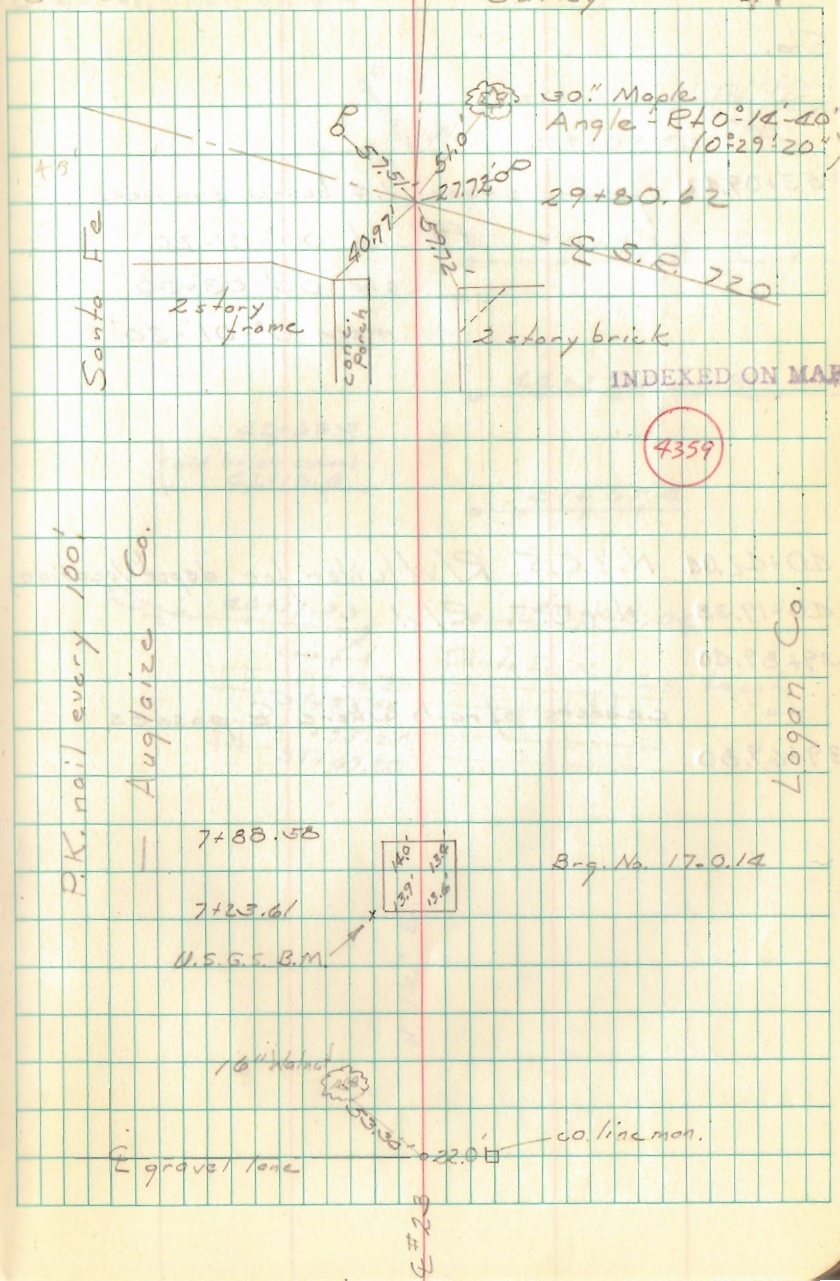 30" Maple
Angle Rt 0°-14'-40"
(0°-29'-20")
57.51'
51.0'
27.72'
29+80.62
40.97'
59.72'
℄ S.R. 720
Santa Fe
2 story
frame
conc.
Porch
2 story brick
INDEXED ON MAP
4359
P.K. nail every 100'
Auglaize Co.
Logan Co.
7+88.58
14.0'
Brg. No. 17-0.14
13.9'
13.6'
7+23.61
U.S.G.S. B.M.
16" Walnut
53.30'
co. line mon.
22.0'
℄ gravel lane
℄ #23